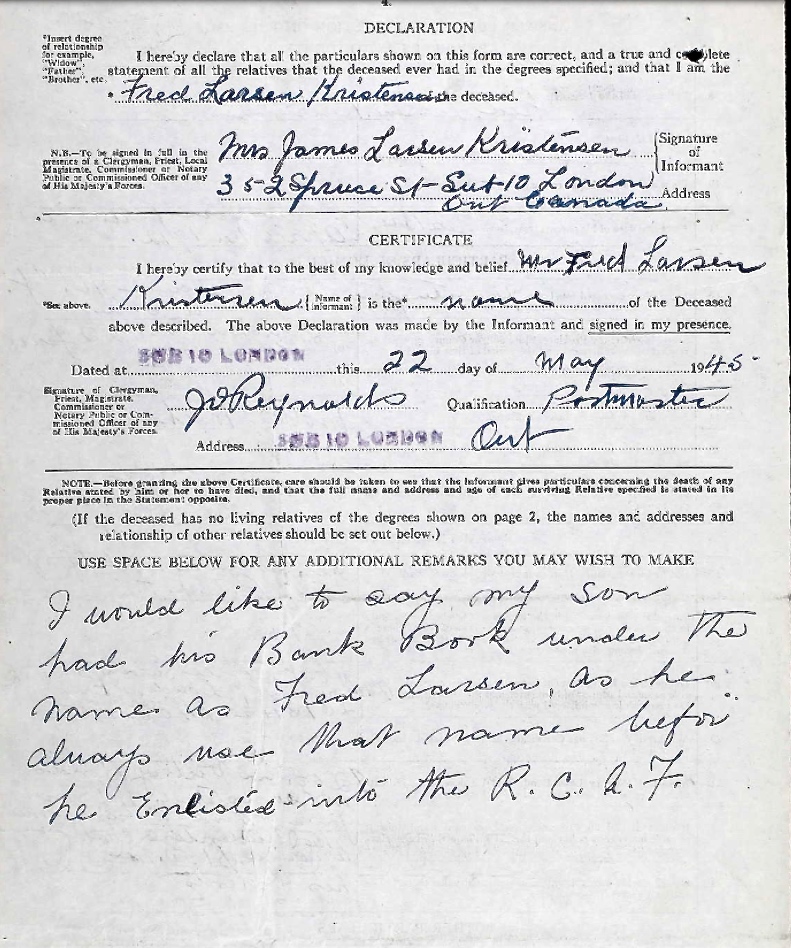 4.
DECLARATION
*Insert degree
of relationship
for example,
"Widow",
"Father",
"Brother", etc.
I hereby declare that all the particulars shown on this form are correct, and a true and complete
statement of all the relatives that the deceased ever had in the degrees specified; and that I am the
* Fred Larsen Kristensen of the deceased.
N.B.—To be signed in full in the
presence of a Clergyman, Priest, Local
Magistrate, Commissioner or Notary
Public or Commissioned Officer of any
of His Majesty's Forces.
Mrs James Larsen Kristensen
Signature
of
Informant
352 Spruce St - Sub-10 London
Ont Canada
Address
CERTIFICATE
I hereby certify that to the best of my knowledge and belief Mr Fred Larsen
*See above.
Kristensen {Name of Informant} is the* name of the Deceased
above described. The above Declaration was made by the Informant and signed in my presence.
Dated at SUB 10 LONDON this 22 day of May 1945
Signature of Clergyman,
Priest, Magistrate,
Commissioner or
Notary Public or Com-
missioned Officer of any
of His Majesty's Forces.
Reynolds Qualification Postmaster
Address SUB 10 LONDON Ont
NOTE.—Before granting the above Certificate, care should be taken to see that the Informant gives particulars concerning the death of any
Relative stated by him or her to have died, and that the full name and address and age of each surviving Relative specified is stated in its
proper place in the Statement opposite.
(If the deceased has no living relatives of the degrees shown on page 2, the names and addresses and
relationship of other relatives should be set out below.)
USE SPACE BELOW FOR ANY ADDITIONAL REMARKS YOU MAY WISH TO MAKE
I would like to say my son
had his Bank Book under the
name as Fred Larsen, as he
always use that name befor
he Enlisted into the R. C. A. F.